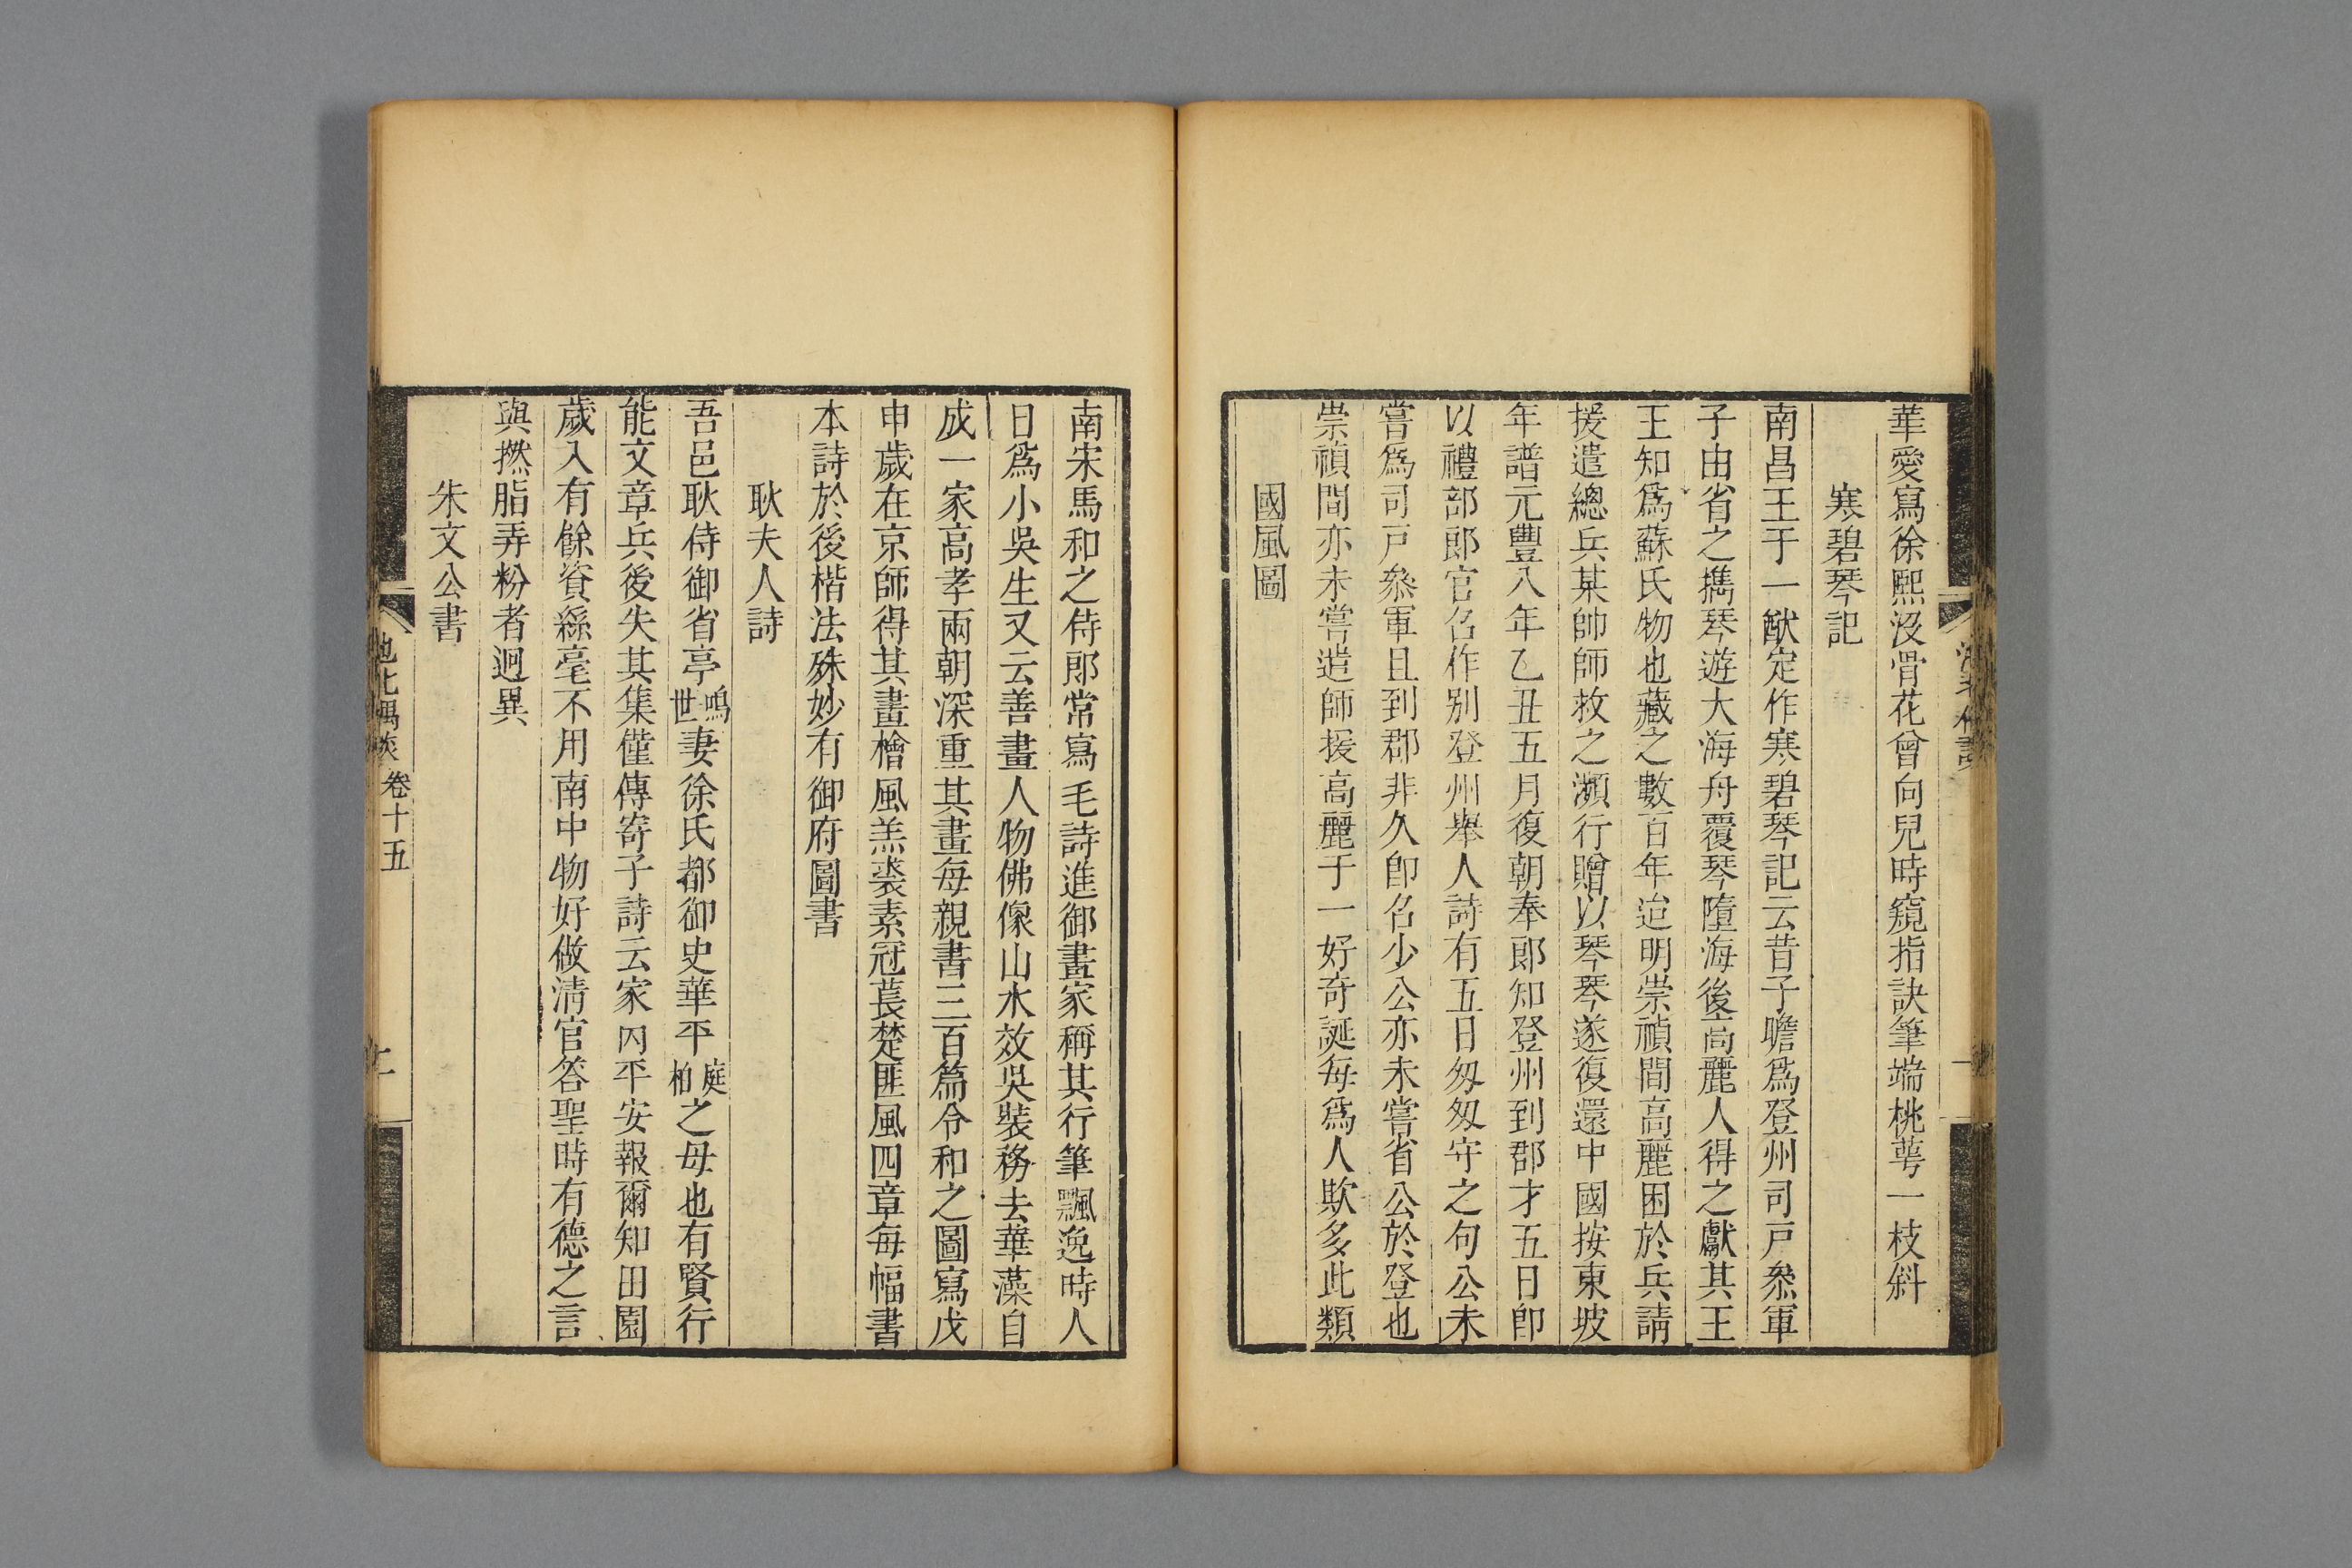 華愛寫徐熙沒骨花曾向兒時窺指訣筆端桃萼一枝斜
寒碧琴記
南昌王于一猷定作寒碧琴記云昔子瞻爲登州司戸叅軍
子由省之攜琴遊大海舟覆琴墮海後高麗人得之獻其王
王知爲蘇氏物也藏之數百年迨明崇禎間高麗困於兵請
援遣總兵某帥師救之瀕行贈以琴琴遂復還中國按東坡
年譜元豐八年乙丑五月復朝奉郎知登州到郡才五日卽
以禮部郎官名作別登州舉人詩有五日匆匆守之句公未
嘗爲司戸叅軍且到郡非久卽名少公亦未嘗省公於登也
崇禎間亦未嘗遣師援高麗于一好奇誕每爲人欺多此類
國風圖
南宋馬和之侍郎常寫毛詩進御畫家稱其行筆飄逸時人
日爲小吳生又云善畫人物佛像山水效吳裝務去華藻自
成一家高孝兩朝深重其畫每親書三百篇令和之圖寫戊
申歲在京師得其畫檜風羔裘素冠萇楚匪風四章每幅書
本詩於後楷法殊妙有御府圖書
耿夫人詩
吾邑耿侍御省亭鳴世妻徐氏都御史華平庭柏之母也有賢行
能文章兵後失其集僅傳寄子詩云家內平安報爾知田園
歲入有餘資絲毫不用南中物好做淸官答聖時有德之言
與撚脂弄粉者迥異
朱文公書
池北偶談 卷十五